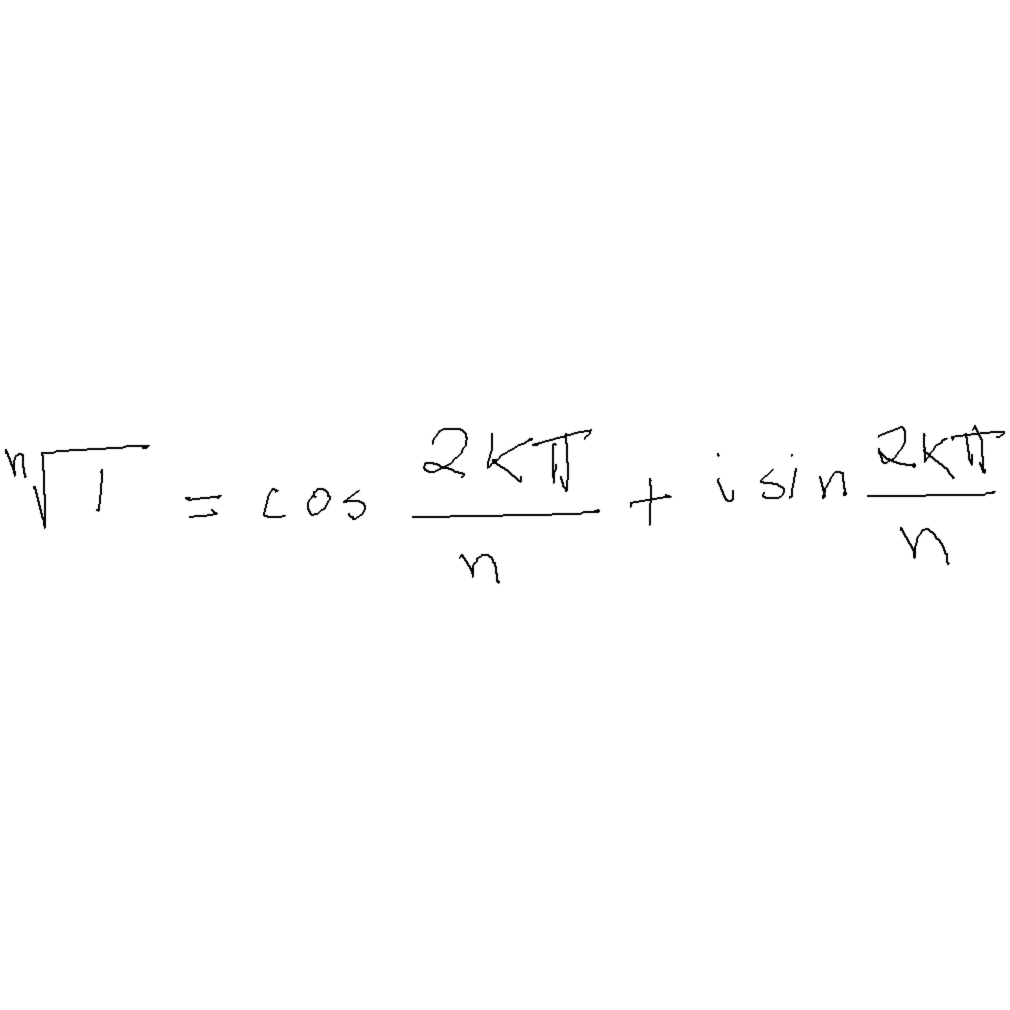 \sqrt[n]{1} = cos \frac{2kπ}{n} + i sin \frac{2kπ}{n}